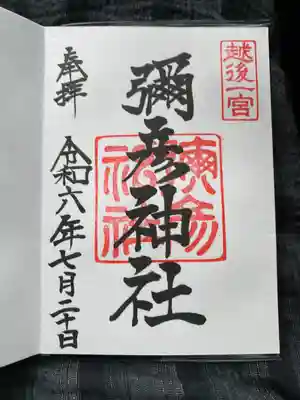 越後一宮
奉拝
彌彦神社
令和六年七月二十日